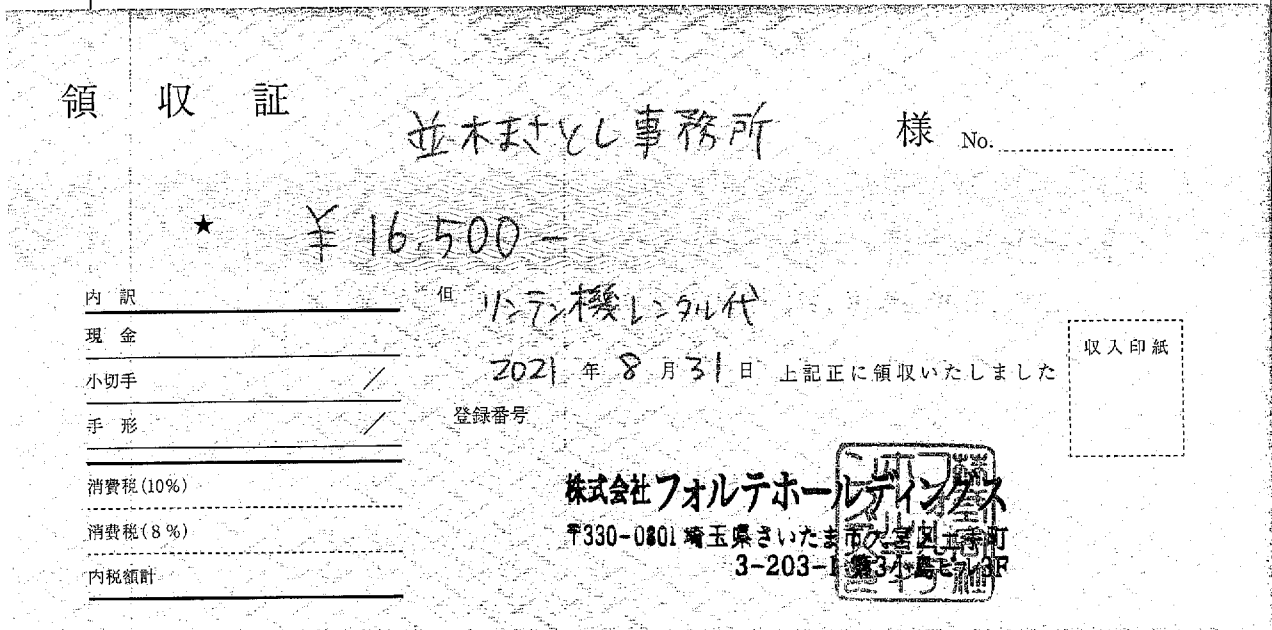 領収証
並木まさとし事務所 様 No.
★ ¥16,500-
内訳
但 リンテン機レンタル代
現金
小切手 /
手形 /
2021年8月31日 上記正に領収いたしました
収入印紙
登録番号
消費税(10%)
消費税(8%)
内税額計
株式会社フォルテホールディングス
〒330-0801 埼玉県さいたま市大宮区土手町
3-203-1 第3小島ビル3F